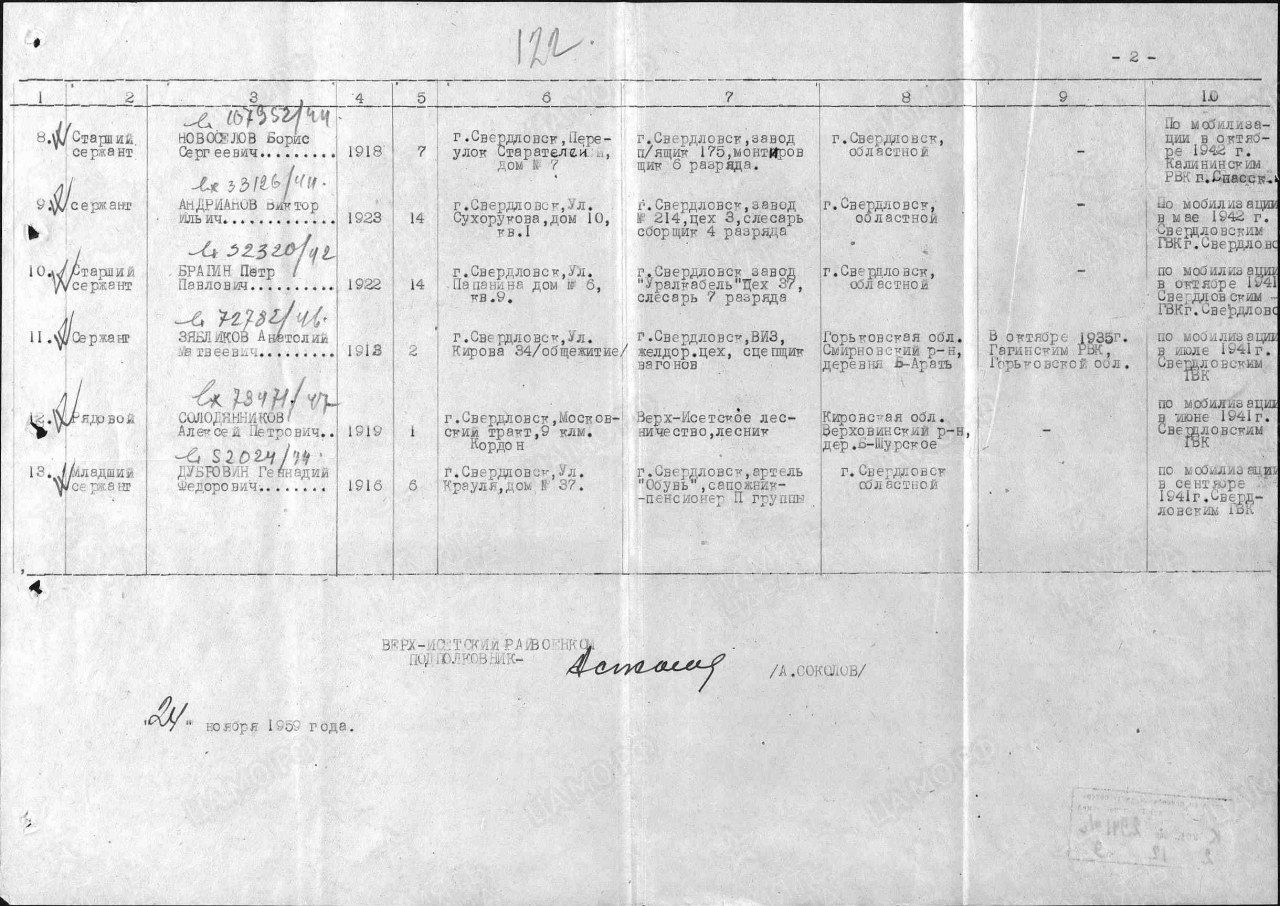 122.
- 2 -
1 2 3 4 5 6 7 8 9 10
107952/44.
8. Старший сержант НОВОСЕЛОВ Борис Сергеевич......... 1918 7 г.Свердловск,Пере-улок Старателей, дом № 7 г.Свердловск,завод п/ящик 175,монтировщик 6 разряда. г.Свердловск, областной - По мобилиза-ции в октяб-ре 1942 г. Калининским РВК г.Спасск.
33126/44.
9. сержант АНДРИАНОВ Виктор Ильич............. 1923 14 г.Свердловск,Ул. Сухорукова,дом 10, кв.1 г.Свердловск,завод № 214,цех 3,слесарь сборщик 4 разряда г.Свердловск, областной - По мобилизации в мае 1942 г. Свердловским ГВКг.Свердловс
52320/42
10. Старший сержант БРАГИН Петр Павлович.......... 1922 14 г.Свердловск,Ул. Папанина дом № 6, кв.9. г.Свердловск завод "Уралкабель"Цех 37, слесарь 7 разряда г.Свердловск, областной - по мобилизации в октябре 1941 Свердловским ГВКг.Свердловс
72782/46.
11. Сержант ЗЯБЛИКОВ Анатолий Матвеевич......... 1913 2 г.Свердловск,Ул. Кирова 34/общежитие/ г.Свердловск,ВИЗ, желдор.цех, сцепщик вагонов Горьковская обл. Смирновский р-н, деревня Б-Арать В октябре 1935г. Гагинским РВК, Горьковской обл. по мобилизации в июле 1941г. Свердловским ГВК
79471/47
12. Рядовой СОЛОДЯННИКОВ Алексей Петрович.. 1919 1 г.Свердловск,Москов-ский тракт,9 клм. Кордон Верх-Исетское лес-ничество,лесник Кировская обл. Верховинский р-н, дер.Б-Шурское - по мобилизации в июне 1941г. Свердловским ГВК
52024/44.
13. Младший сержант ДУБРОВИН Геннадий Федорович........ 1916 6 г.Свердловск,Ул. Крауля,дом № 37. г.Свердловск,артель "Обувь",сапожник--пенсионер П группы г.Свердловск областной по мобилизации в сентябре 1941г.Сверд-ловским ГВК
ВЕРХ-ИСЕТСКИЙ РАЙВОЕНКОМ
ПОДПОЛКОВНИК-
/А.СОКОЛОВ/
"24" ноября 1959 года.